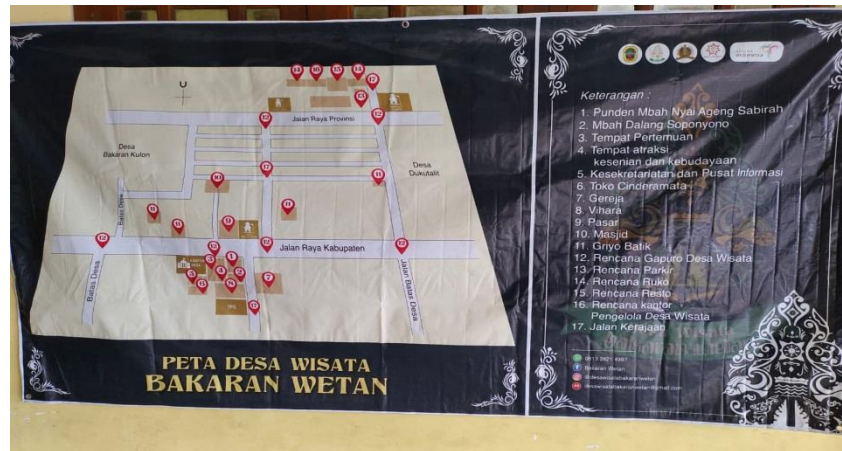 Jalan Raya Provinsi
Desa
Bakaran Kulon
Desa
Dukutalit
Batas Desa
Jalan Raya Kabupaten
Batas Desa
Jalan Batas Desa
PETA DESA WISATA
BAKARAN WETAN
Keterangan :
1. Punden Mbah Nyai Ageng Sabirah
2. Mbah Dalang Soponyono
3. Tempat Pertemuan
4. Tempat atraksi
kesenian dan kebudayaan
5. Kesekretariatan dan Pusat Informasi
6. Toko Cinderamata
7. Gereja
8. Vihara
9. Pasar
10. Masjid
11. Griyo Batik
12. Rencana Gapuro Desa Wisata
13. Rencana Parkir
14. Rencana Ruko
15. Rencana Resto
16. Rencana kantor
Pengelola Desa Wisata
17. Jalan Kerajaan
Bakaran Wetan